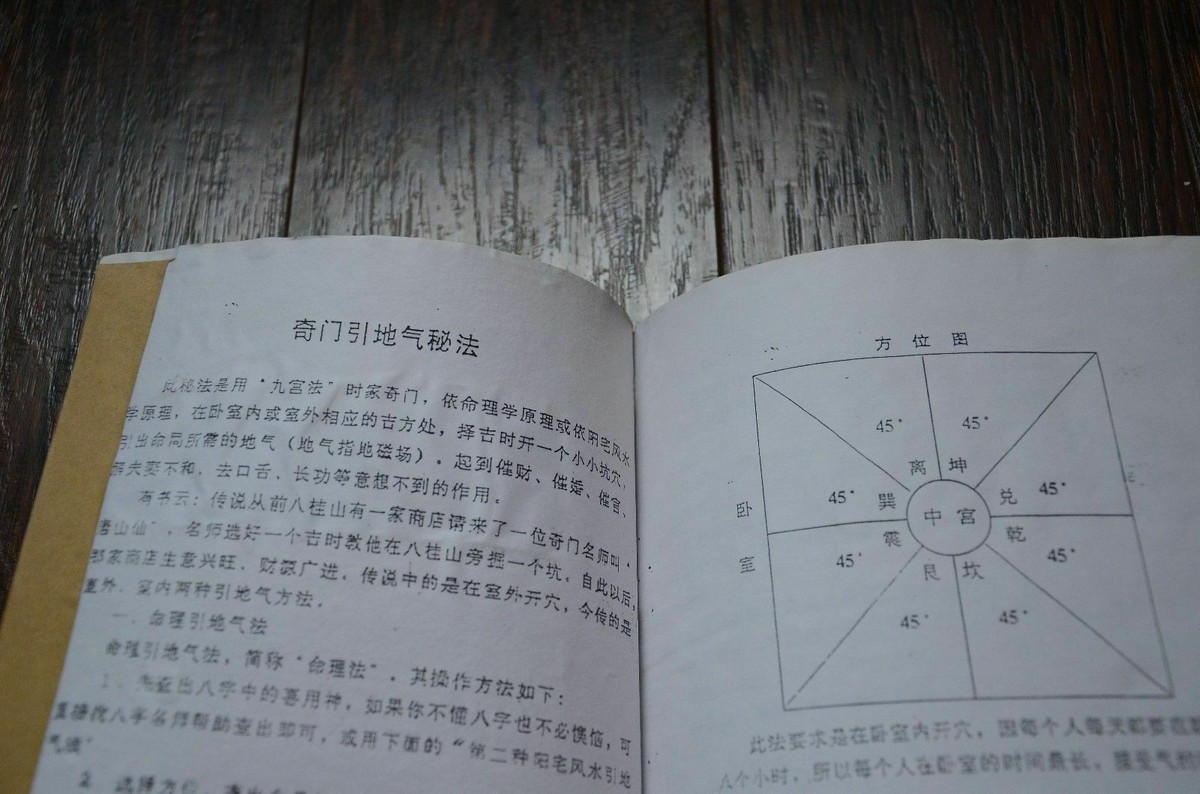 奇门引地气秘法
此秘法是用“九宫法”时家奇门，依命理学原理或依阳宅风水
学原理，在卧室内或室外相应的吉方处，择吉时开一个小小坑穴，
引出命局所需的地气（地气指地磁场）。起到催财、催婚、催官、
解夫妻不和、去口舌、长功等意想不到的作用。
有书云：传说从前八桂山有一家商店请来了一位奇门名师叫“
唐山仙”，名师选好一个吉时教他在八桂山旁掘一个坑。自此以后，
那家商店生意兴旺、财源广进。传说中的是在室外开穴，今传的是
室外、室内两种引地气方法。
一、命理引地气法
命理引地气法，简称“命理法”。其操作方法如下：
1、先查出八字中的喜用神，如果你不懂八字也不必懊恼，可
直接找八字名师帮助查出即可，或用下面的“第二种阳宅风水引地
气法”
2、选择方位
方位图
45° 45°
离 坤
45° 巽 兑 45°
卧
中宫
震 乾
室 45° 45°
艮 坎
45° 45°
此法要求是在卧室内开穴，因每个人每天都要在
八个小时，所以每个人在卧室的时间最长，接受气